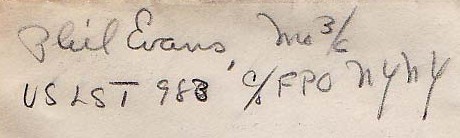 Phil Evans, Mo 3/c
US LST 983, c/o FPO NY NY